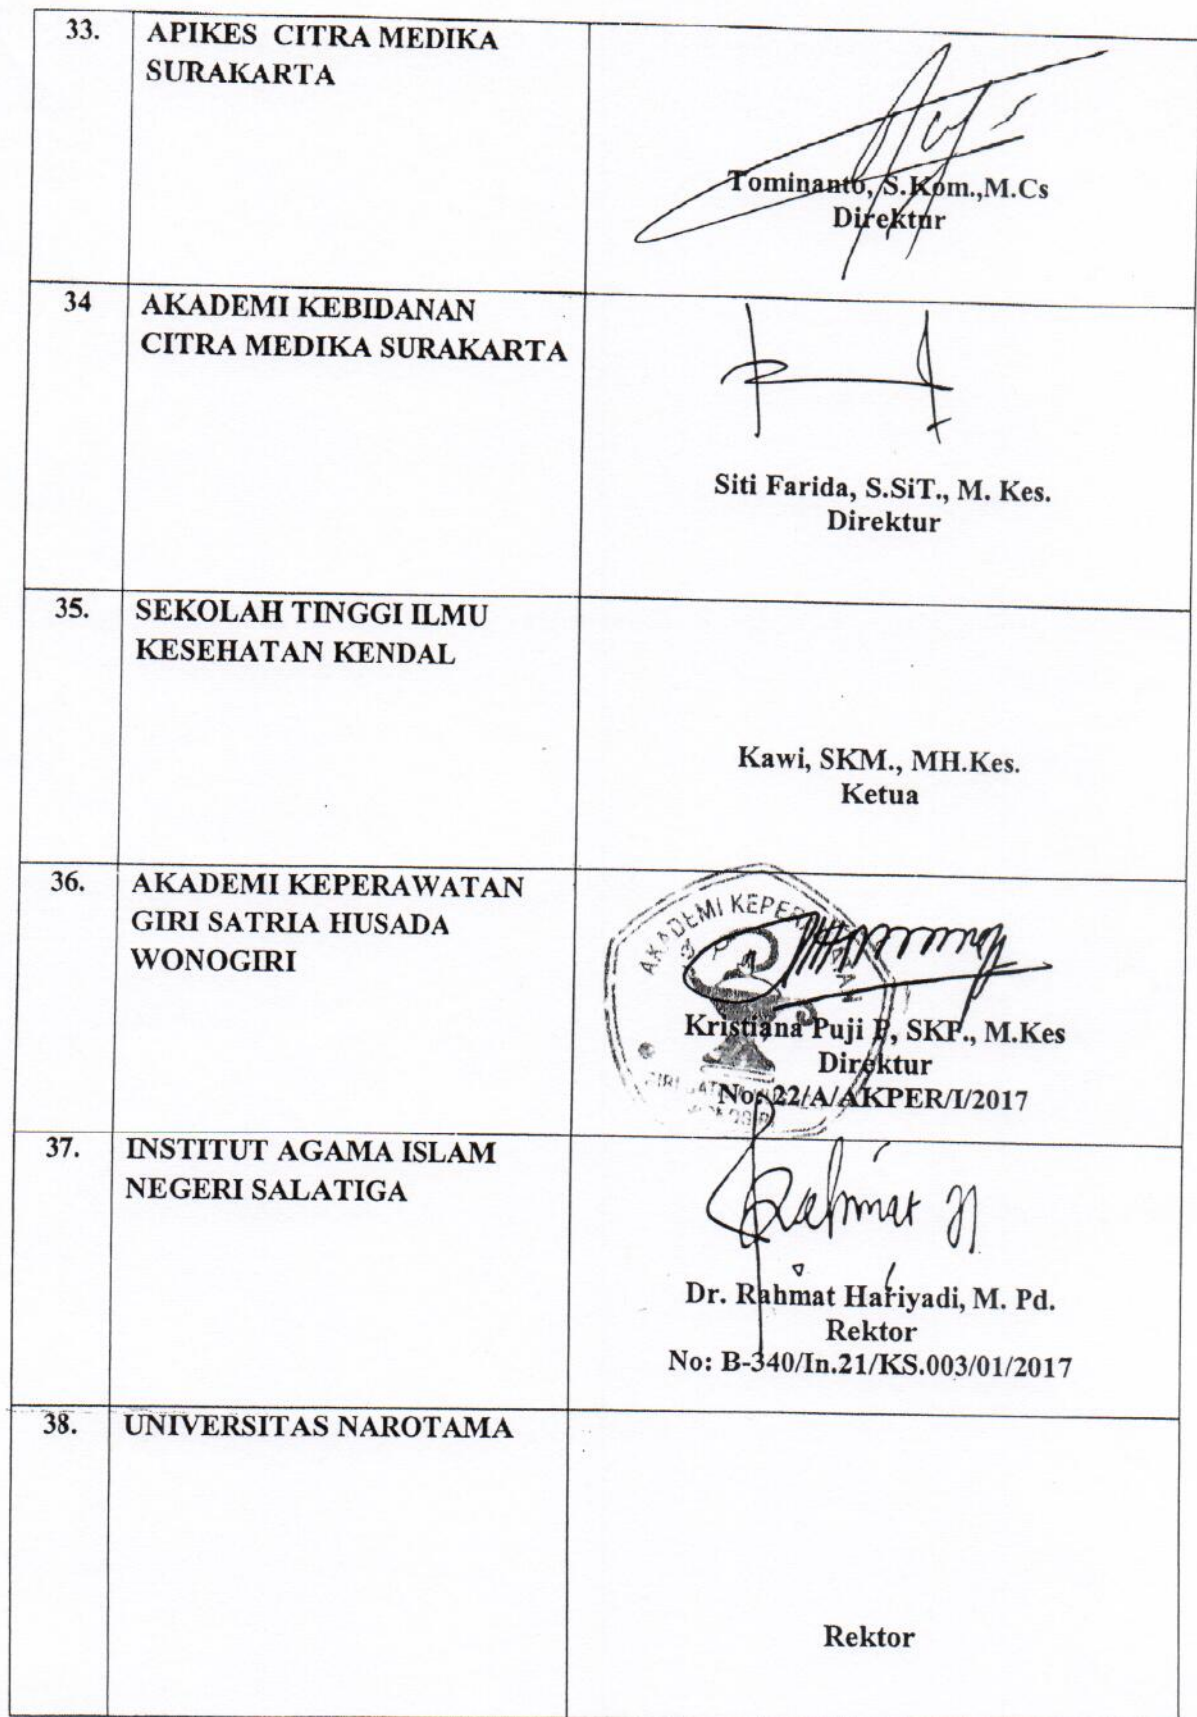 33.
APIKES CITRA MEDIKA
SURAKARTA
Tominanto, S.Kom.,M.Cs
Direktur
34
AKADEMI KEBIDANAN
CITRA MEDIKA SURAKARTA
Siti Farida, S.SiT., M. Kes.
Direktur
35.
SEKOLAH TINGGI ILMU
KESEHATAN KENDAL
Kawi, SKM., MH.Kes.
Ketua
36.
AKADEMI KEPERAWATAN
GIRI SATRIA HUSADA
WONOGIRI
AKADEMI KEPERAWATAN
Kristiana Puji P, SKP., M.Kes
Direktur
No: 22/A/AKPER/I/2017
37.
INSTITUT AGAMA ISLAM
NEGERI SALATIGA
Rahmat
Dr. Rahmat Hariyadi, M. Pd.
Rektor
No: B-340/In.21/KS.003/01/2017
38.
UNIVERSITAS NAROTAMA
Rektor